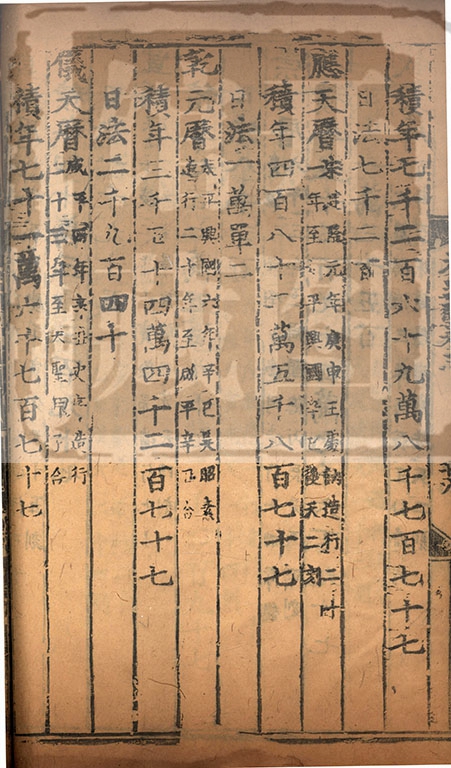 積年七千二百六十九萬八千七百七十七
日法七千二百
應天曆 宋建隆元年庚申王處訥造行二十
年至太平興國辛巳後天二刻
積年四百八十萬五千八百七十七
日法一萬單二
乾元曆 太平興國六年辛巳吳昭素
造行二十年至咸平辛丑合
積年三千五十四萬四千二百七十七
日法二千九百四十
儀天曆 咸平四年辛丑史序造行
二十三年至天聖甲子合
積年七十一萬六千七百七十七